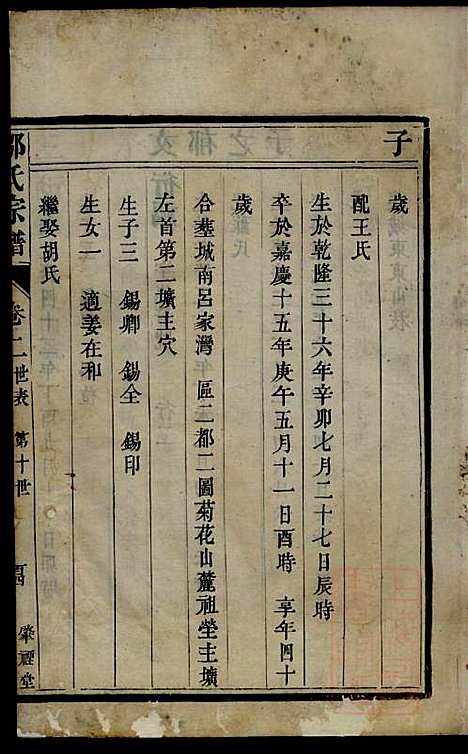 子
歲
配王氏
生於乾隆三十六年辛卯七月二十七日辰時
卒於嘉慶十五年庚午五月十一日酉時　享年四十
歲
合塟城南呂家灣　區二都二圖菊花山麓祖塋主壙
左首第二壙主穴
生子三　錫卿　錫全　錫印
生女一　適姜在和
繼娶胡氏
氏宗譜　卷二　世表　第十世　肇禋堂